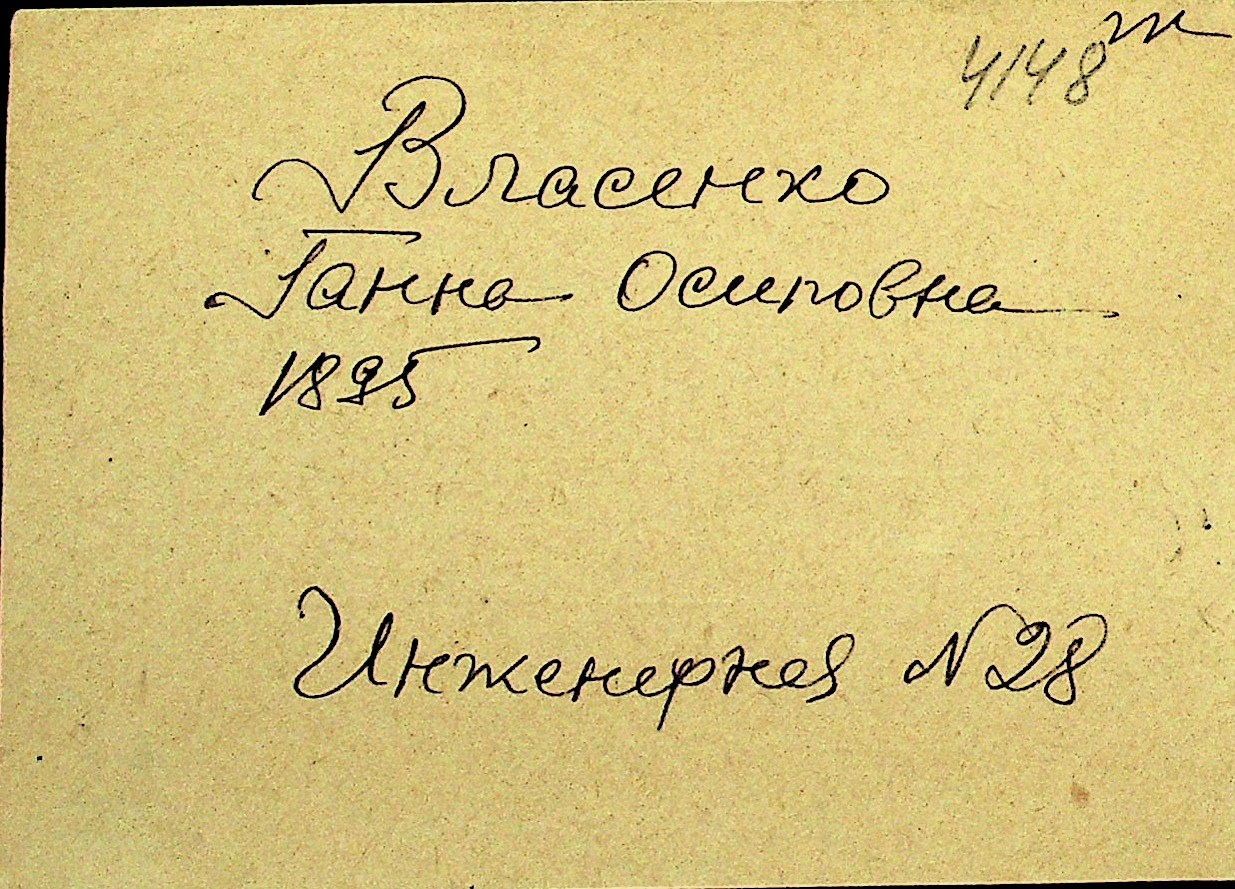 4148
Власенко
Ганна Осиповна
1895
Инженерная N 28